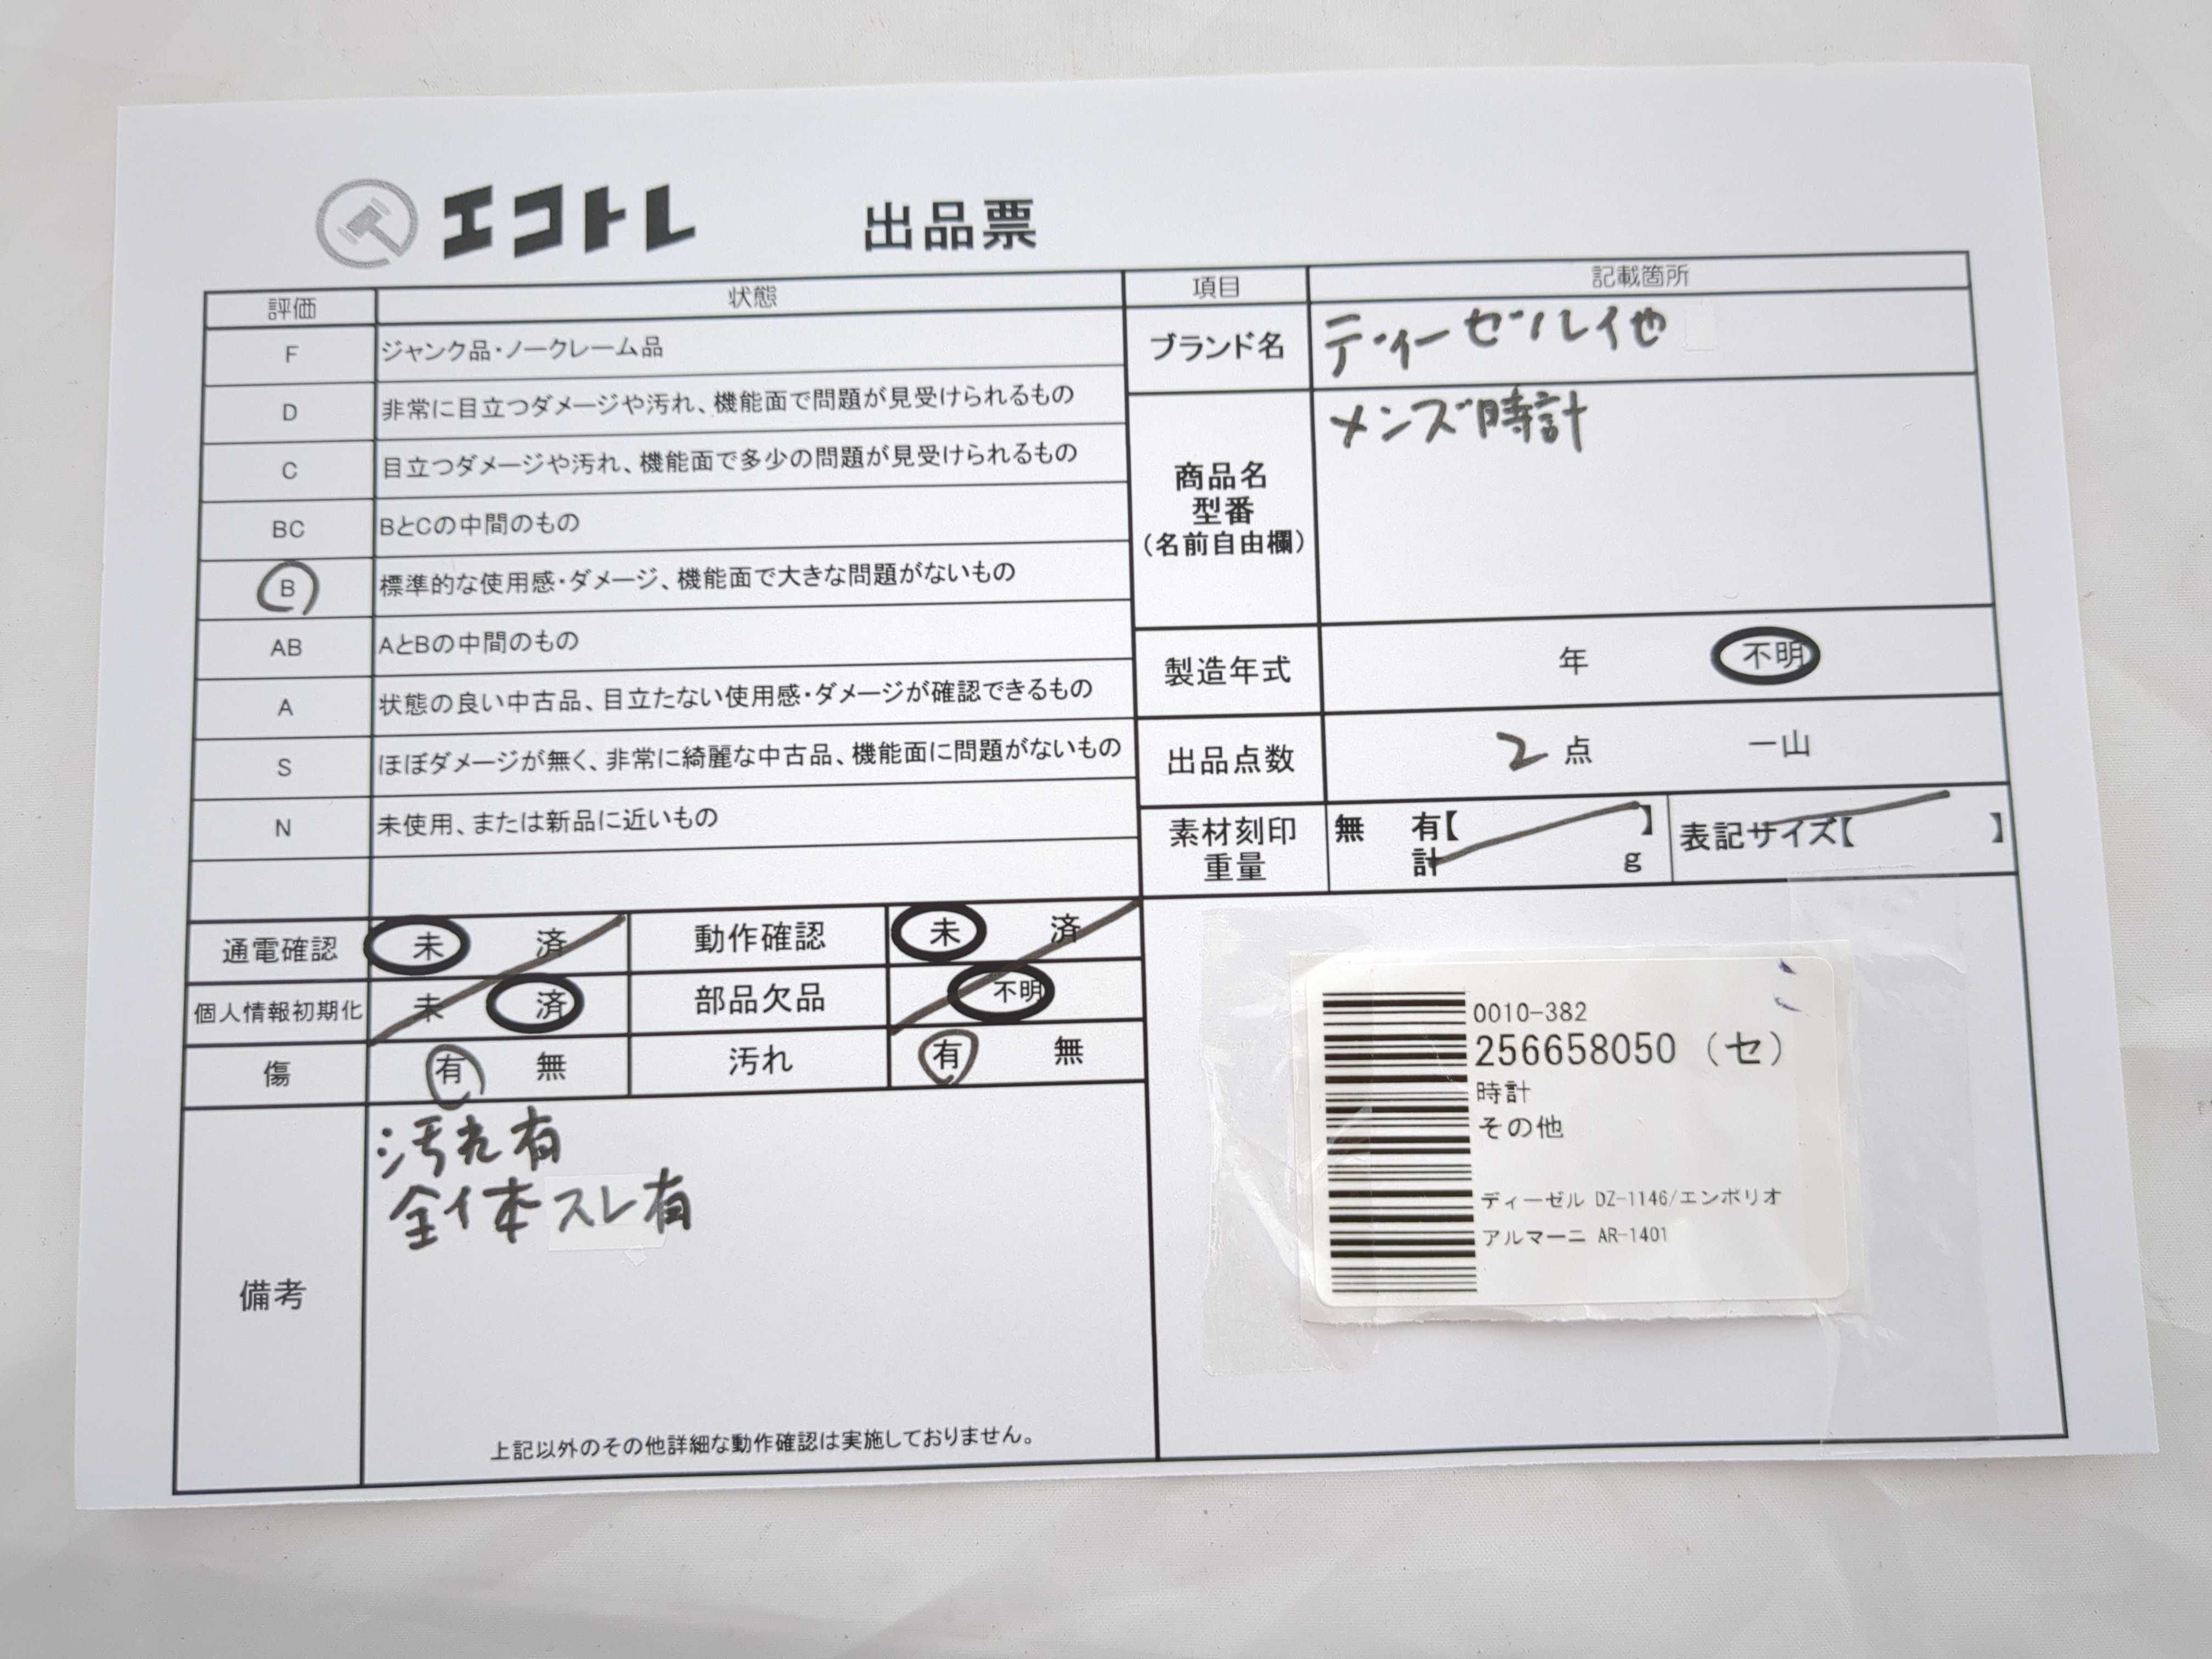 エコトレ 出品票
評価 状態
F ジャンク品・ノークレーム品
D 非常に目立つダメージや汚れ、機能面で問題が見受けられるもの
C 目立つダメージや汚れ、機能面で多少の問題が見受けられるもの
BC BとCの中間のもの
B 標準的な使用感・ダメージ、機能面で大きな問題がないもの
AB AとBの中間のもの
A 状態の良い中古品、目立たない使用感・ダメージが確認できるもの
S ほぼダメージが無く、非常に綺麗な中古品、機能面に問題がないもの
N 未使用、または新品に近いもの
項目 記載箇所
ブランド名 ディーゼル他
商品名
型番
(名前自由欄)
メンズ時計
製造年式 年 不明
出品点数 2点 一山
素材刻印
重量
無 有【 】
計 g
表記サイズ【 】
通電確認 未 済 動作確認 未 済
個人情報初期化 未 済 部品欠品 不明
傷 有 無 汚れ 有 無
備考
汚れ有
全体スレ有
上記以外のその他詳細な動作確認は実施しておりません。
0010-382
256658050 (セ)
時計
その他
ディーゼル DZ-1146/エンポリオ
アルマーニ AR-1401